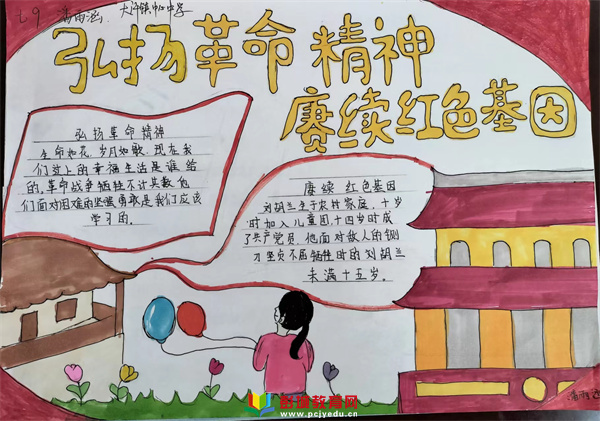 七9 潘雨涵 大许镇中心中学
弘扬革命精神
赓续红色基因
弘扬革命精神
生命如花,岁月如歌,现在我
们过上的幸福生活是谁给
的,革命战争牺牲不计其数,他
们面对困难的坚强勇敢是我们应该
学习的。
赓续 红色基因
刘胡兰生于农村家庭,十岁
时加入儿童团,十四岁时成
了共产党员,他面对敌人的铡
刀坚贞不屈牺牲时的刘胡兰
未满十五岁。
潘雨涵
教育网
www.pcjyedu.com